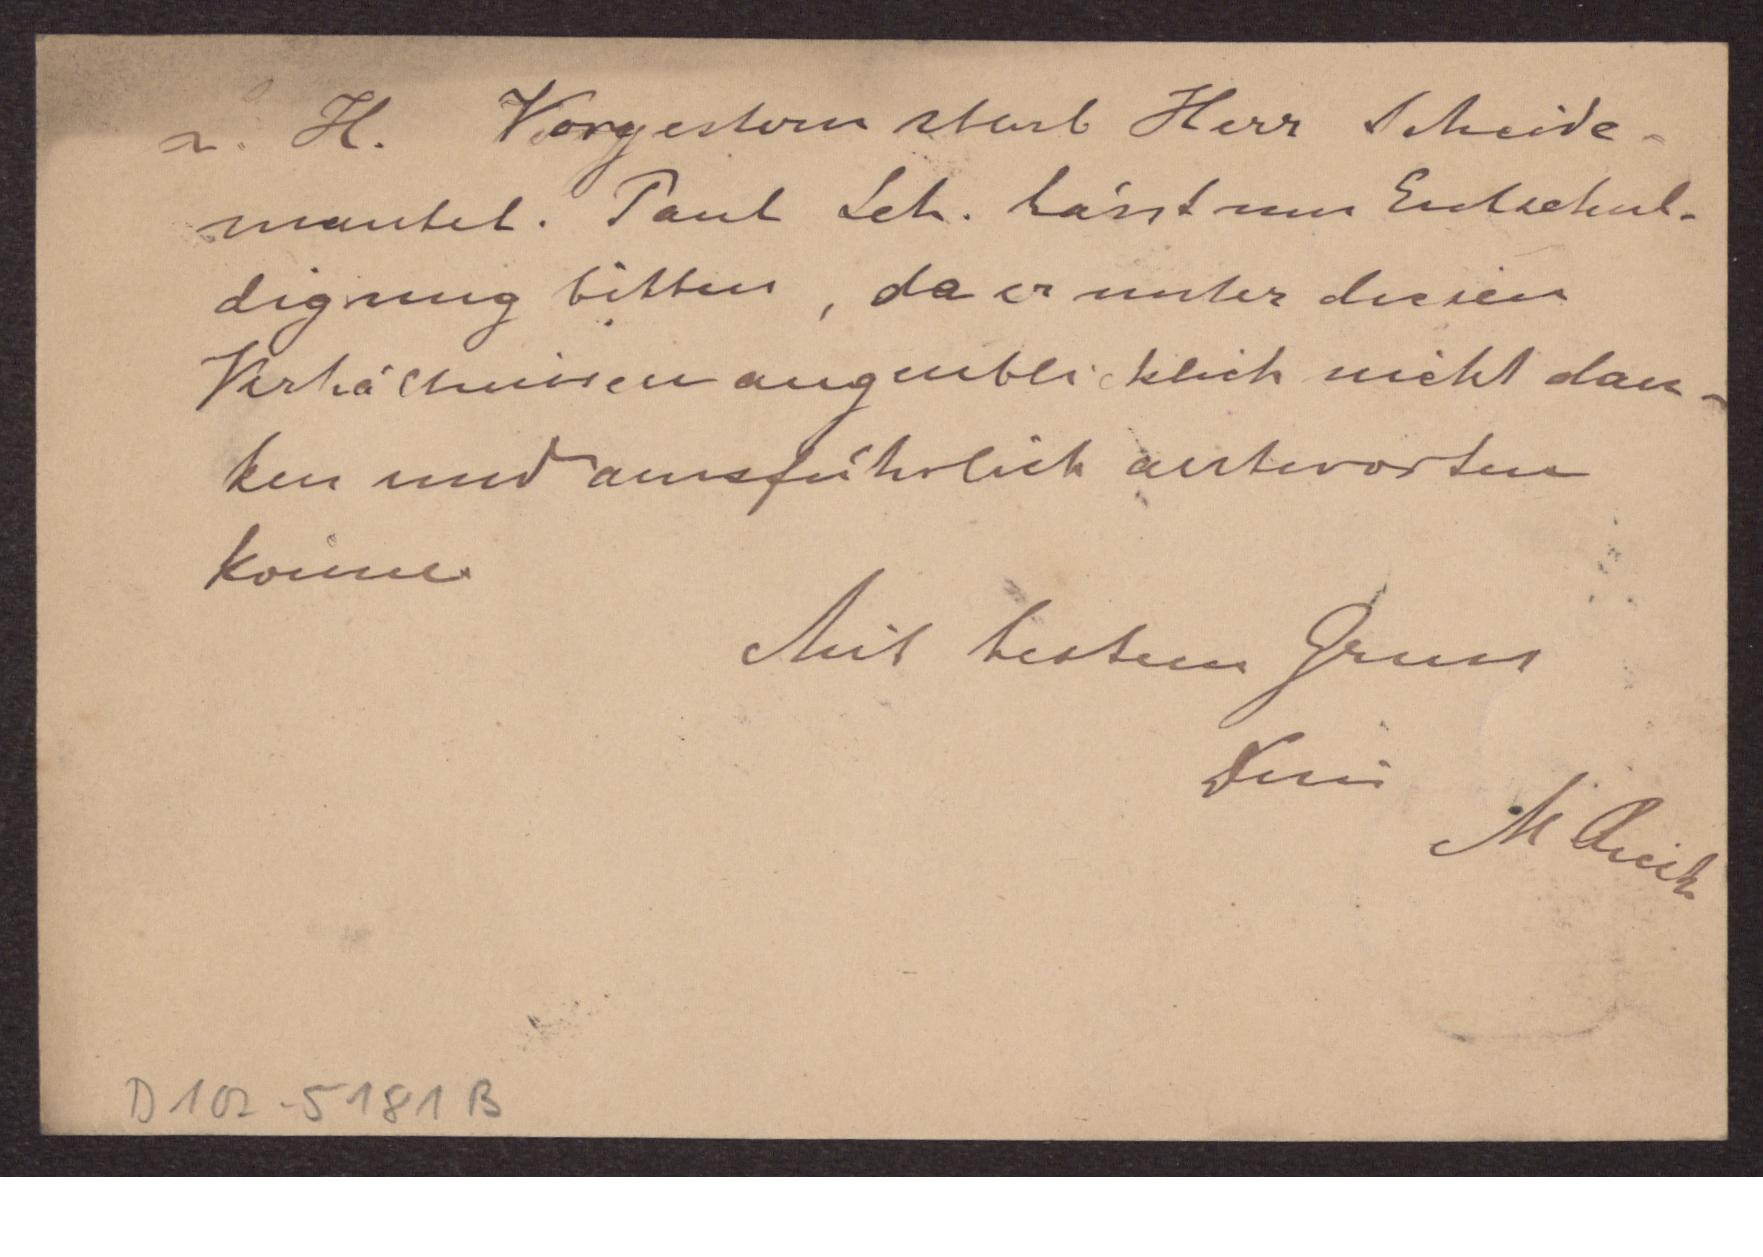 L. H. Vorgestern starb Herr Scheide-
mantel. Paul Sch. lässt um Entschul-
digung bitten, da er unter diesen
Verhältnissen augenblicklich nicht dan-
ken und ausführlich antworten
könne.
Mit bestem Gruss
Dein
M Reich
D 102-5181 B